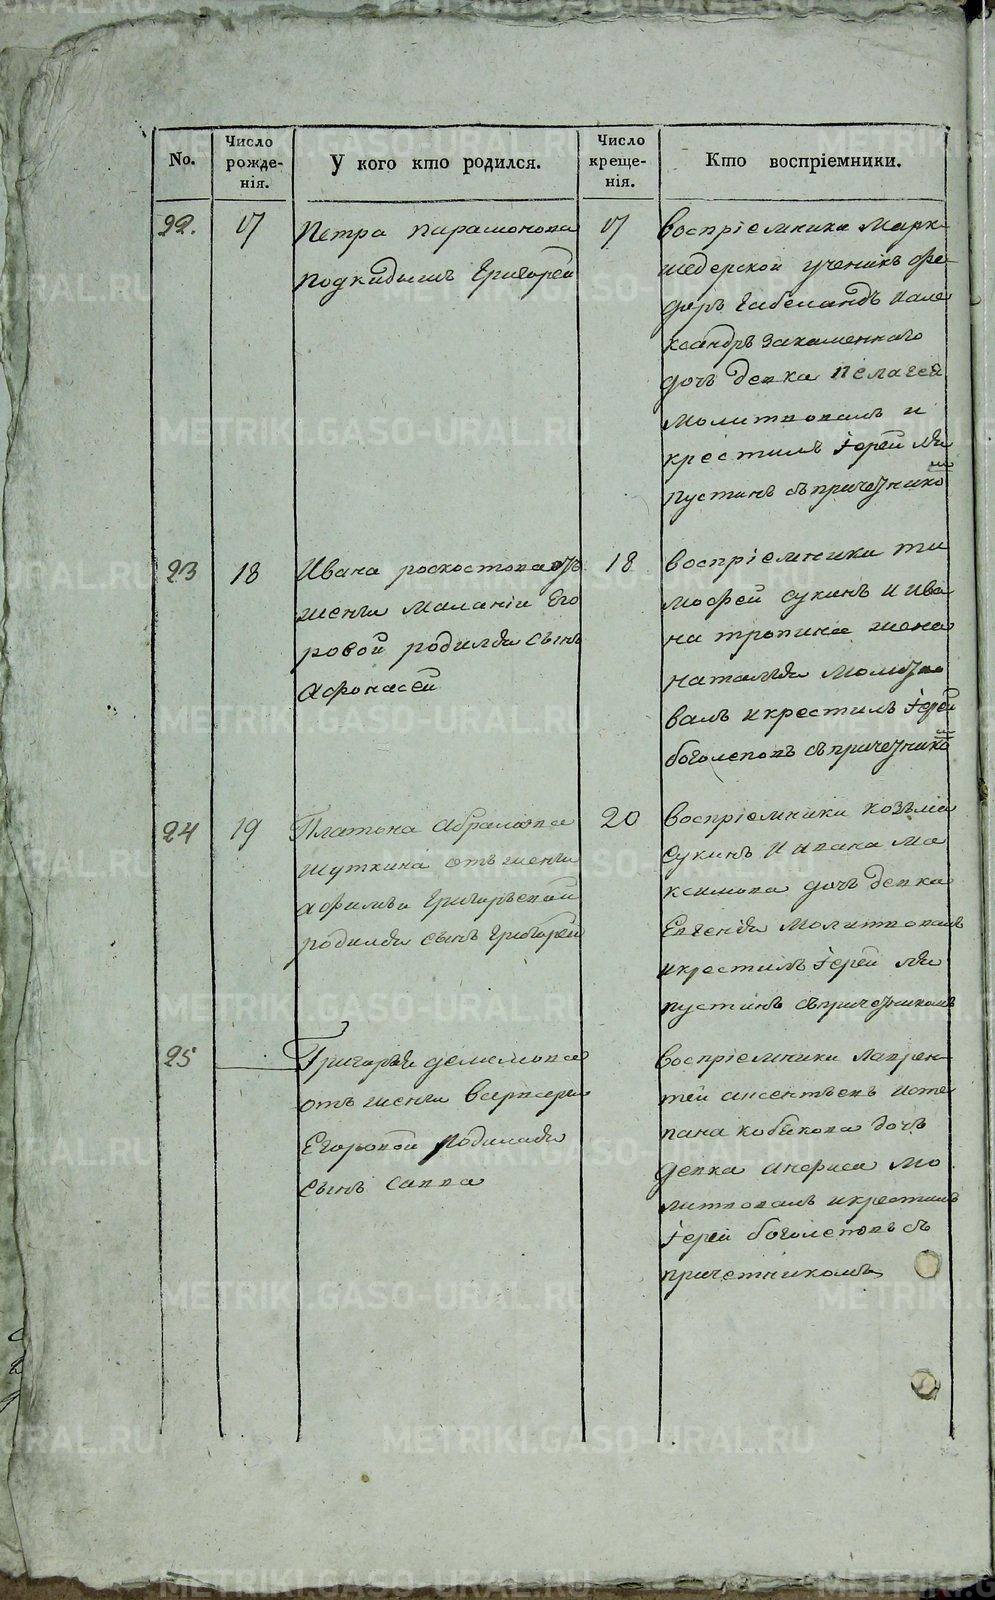 No.
Число рожде-нія.
У кого кто родился.
Число креще-нія.
Кто воспріемники.
22.
17
Петра парамонова
подкидышъ Григорей
17
воспріемники Марк
шедерской ученикъ Фе
доръ Габеландъ и але
ксандръ Закаменнаго
дочь девка Пелагея
молитвовалъ и
крестилъ Іерей Ля
пустинъ съ причетнико
23
18
Ивана роскостова отъ
жены Маланіи Его
ровой родился сынъ
Афонасей
18
воспріемники ти
мофей сукинъ и ива
на тропина жена
наталья молитво
валъ и крестилъ Іерей
боголеповъ съ причетнико
24
19
Платона Абрамова
шуткина отъ жены
афимьи Григорьевой
родился сынъ Григорей
20
воспріемники козьма
Сукинъ и ивана ма
ксимова дочь девка
Евгенія молитвовалъ
и крестилъ Іерей ля
пустинъ съ причетникомъ
25
Григорья
отъ жены
Егоровой родился
сынъ савва
воспріемники лаврен
тей авсентьевъ и сте
пана кобякова дочь
девка анфиса мо
литвовалъ и крестилъ
Іерей боголеповъ съ
причетникомъ
METRIKI.GASO-URAL.RU